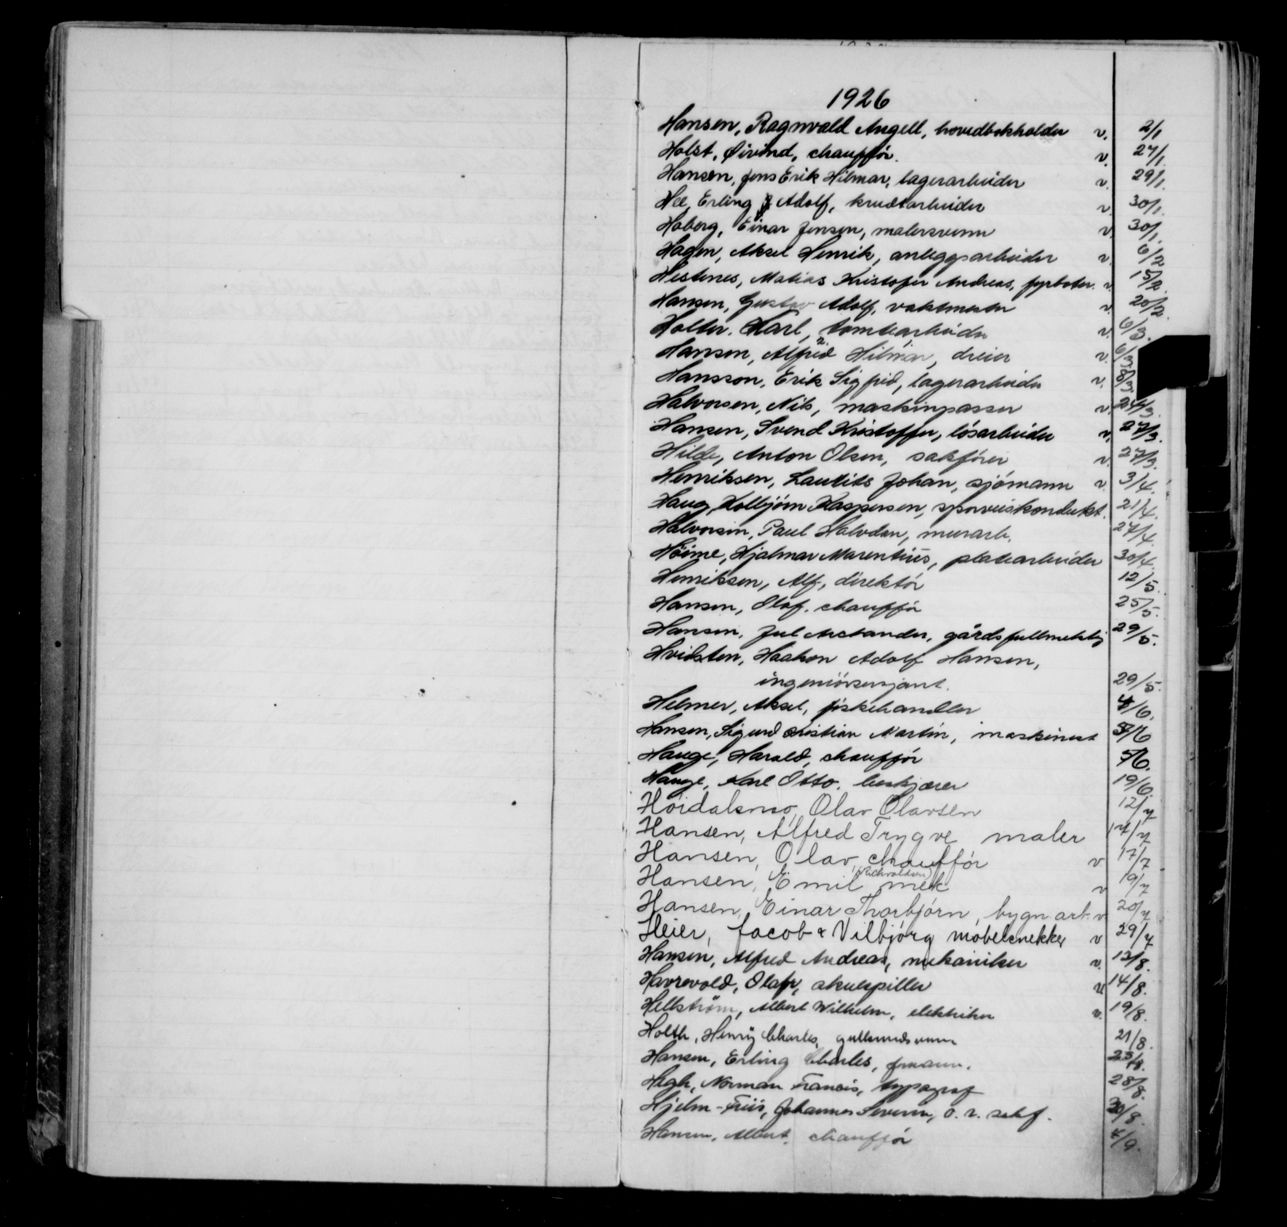 1926
Hansen, Ragnvald Angell, hovedbokholder v. 2/1
Holst, Øivind, chauffør. v. 27/1
Hansen, Jens Erik Hilmar, lagerarbeider v. 29/1
Hee, Erling Adolf, krudtarbeider v. 30/1
Hoberg, Einar Jensen, malersvenn v. 30/1
Hagen, Aksel Henrik, anleggsarbeider v. 6/2
Hestenes, Matias Kristofer Andreas, fyrbøter v. 15/2
Hansen, Gustav Adolf, vaktmester v. 20/2
Holter, Karl, tomtearbeider v. 6/3
Hansen, Alfred Hilmar, dreier v. 6/3
Hansson, Erik Sigfrid, lagerarbeider v. 8/3
Halvorsen, Nils, maskinpasser v. 24/3
Hansen, Svend Kristoffer, løsarbeider v. 27/3
Hilde, Anton Olsen, sakfører v. 27/3
Henriksen, Lauritz Johan, sjømann v. 3/4
Haug, Kolbjørn Kaspersen, sporveiskondukt. 21/4
Halvorsen, Paul Halvdan, murarb. 27/4
Høime, Hjalmar Marentius, platearbeider 30/4
Henriksen, Alf, direktør 12/5
Hansen, Olaf, chauffør 25/5
Hansen, Jul Alexander, gårdsfullmektig 29/5
Hvidsten, Haakon Adolf Hansen,
ingeniørsersjant. 29/5
Helmer, Aksel, fiskehandler 4/6
Hansen, Sigurd Kristian Martin, maskinist 5/6
Hauge, Harald, chauffør 5/6
Hauge, Karl Otto, 19/6
Høidalsmo, Olav Olavsen 12/7
Hansen, Alfred Trygve maler 14/7
Hansen, Olav, chauffør v 17/7
Hansen, Emil mek v 19/7
Hansen, Einar Thorbjørn, bygn.arb. v 20/7
Heier, Jacob Vilbjørg møbelsnekker v 29/7
Hansen, Alfred Andreas, mekaniker v. 13/8
Havrevold, Olafr, skuespiller v 14/8
Hellstrøm, Albert Wilhelm, elektriker v. 19/8
Holth, Henry Charles, gullsmedsvenn 21/8
Hansen, Erling Charles, 25/8
Høgh, Norman Francis, typograf 28/8
Hjelm-Friis, Johannes Severin, o.r. sakf. 30/8
Hansen, Albert, chauffør 4/9